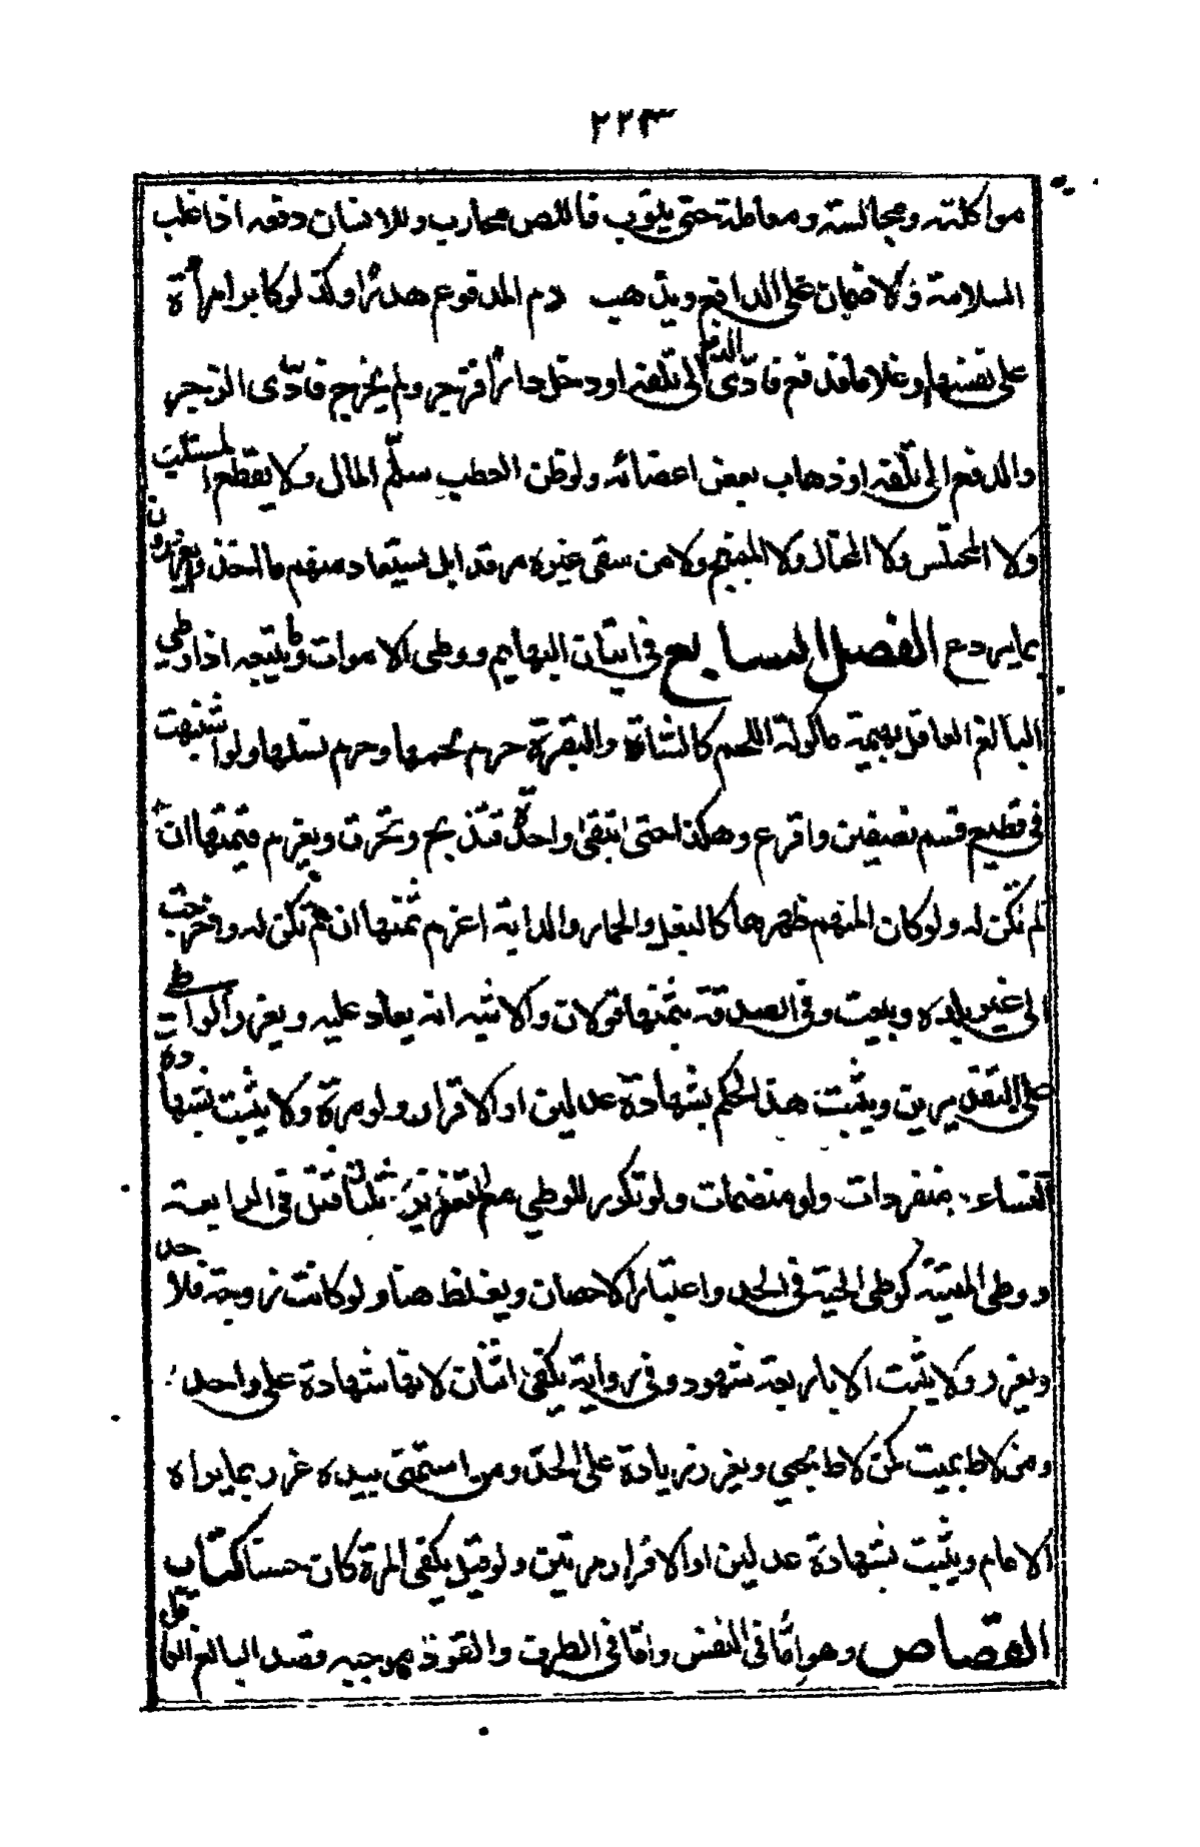 ٢٢٣
مواكلته ومجالسته ومعاملته حتى يتوب فاللص محارب وللانسان دفعه اذا غلب
السلامة ولا ضمان على الدافع ويذهب دم المدفوع هدرا وكذا لو كابر امرأة
على نفسها او غلاما فدفع فادّى الدفع الى تلفه او دخل دارا فزجر ولم يخرج فادّى الزجر
والدفع الى تلفه او ذهاب بعض اعضائه ولو ظن العطب سلّم المال ولا يقطع المستلب
ولا المختلس ولا المحتال ولا المبنج ولا من سقى غيره مرقدا بل يستعاد منهم ما اخذ ويعزرون
بما يردع الفصل السابع في اتيان البهايم ووطى الاموات وما يتبعه اذا وطى
البالغ العاقل بهيمة ماكولة اللحم كالشاة والبقرة حرم لحمها وحرم نسلها ولو اشتبهت
في قطيع قسم نصفين واقرع وهكذا حتى تبقى واحدة فتذبح وتحرق ويغرم قيمتها ان
لم تكن له ولو كان المهم ظهرها كالبغل والحمار والدابة اغرم ثمنها ان لم تكن له واخرجت
الى غير بلده وبيعت وفي الصدقة بثمنها قولان والاشبه انه يعاد عليه ويعزر الواطى
على التقديرين ويثبت هذا الحكم بشهادة عدلين او الاقرار ولو مرة ولا يثبت بشهادة
النساء منفردات ولو منضمات ولو تكرر الوطي مع التعزير ثلثا قتل في الرابعة
ووطى الميتة كوطى الحية في الحد واعتبار الاحصان ويغلظ هنا ولو كانت زوجة فلا حد
ويعزر ولا يثبت الا باربعة شهود وفي رواية يكفى اثنان لانها شهادة على واحد
ومن لاط بميت كمن لاط بحي ويعزر زيادة على الحد ومن استمنى بيده عزر بما يراه
الامام ويثبت بشهادة عدلين او الاقرار مرتين ولو قيل يكفى المرة كان حسنا كتاب
القصاص وهو امّا في النفس وامّا في الطرف والقود موجبه قصد البالغ العاقل